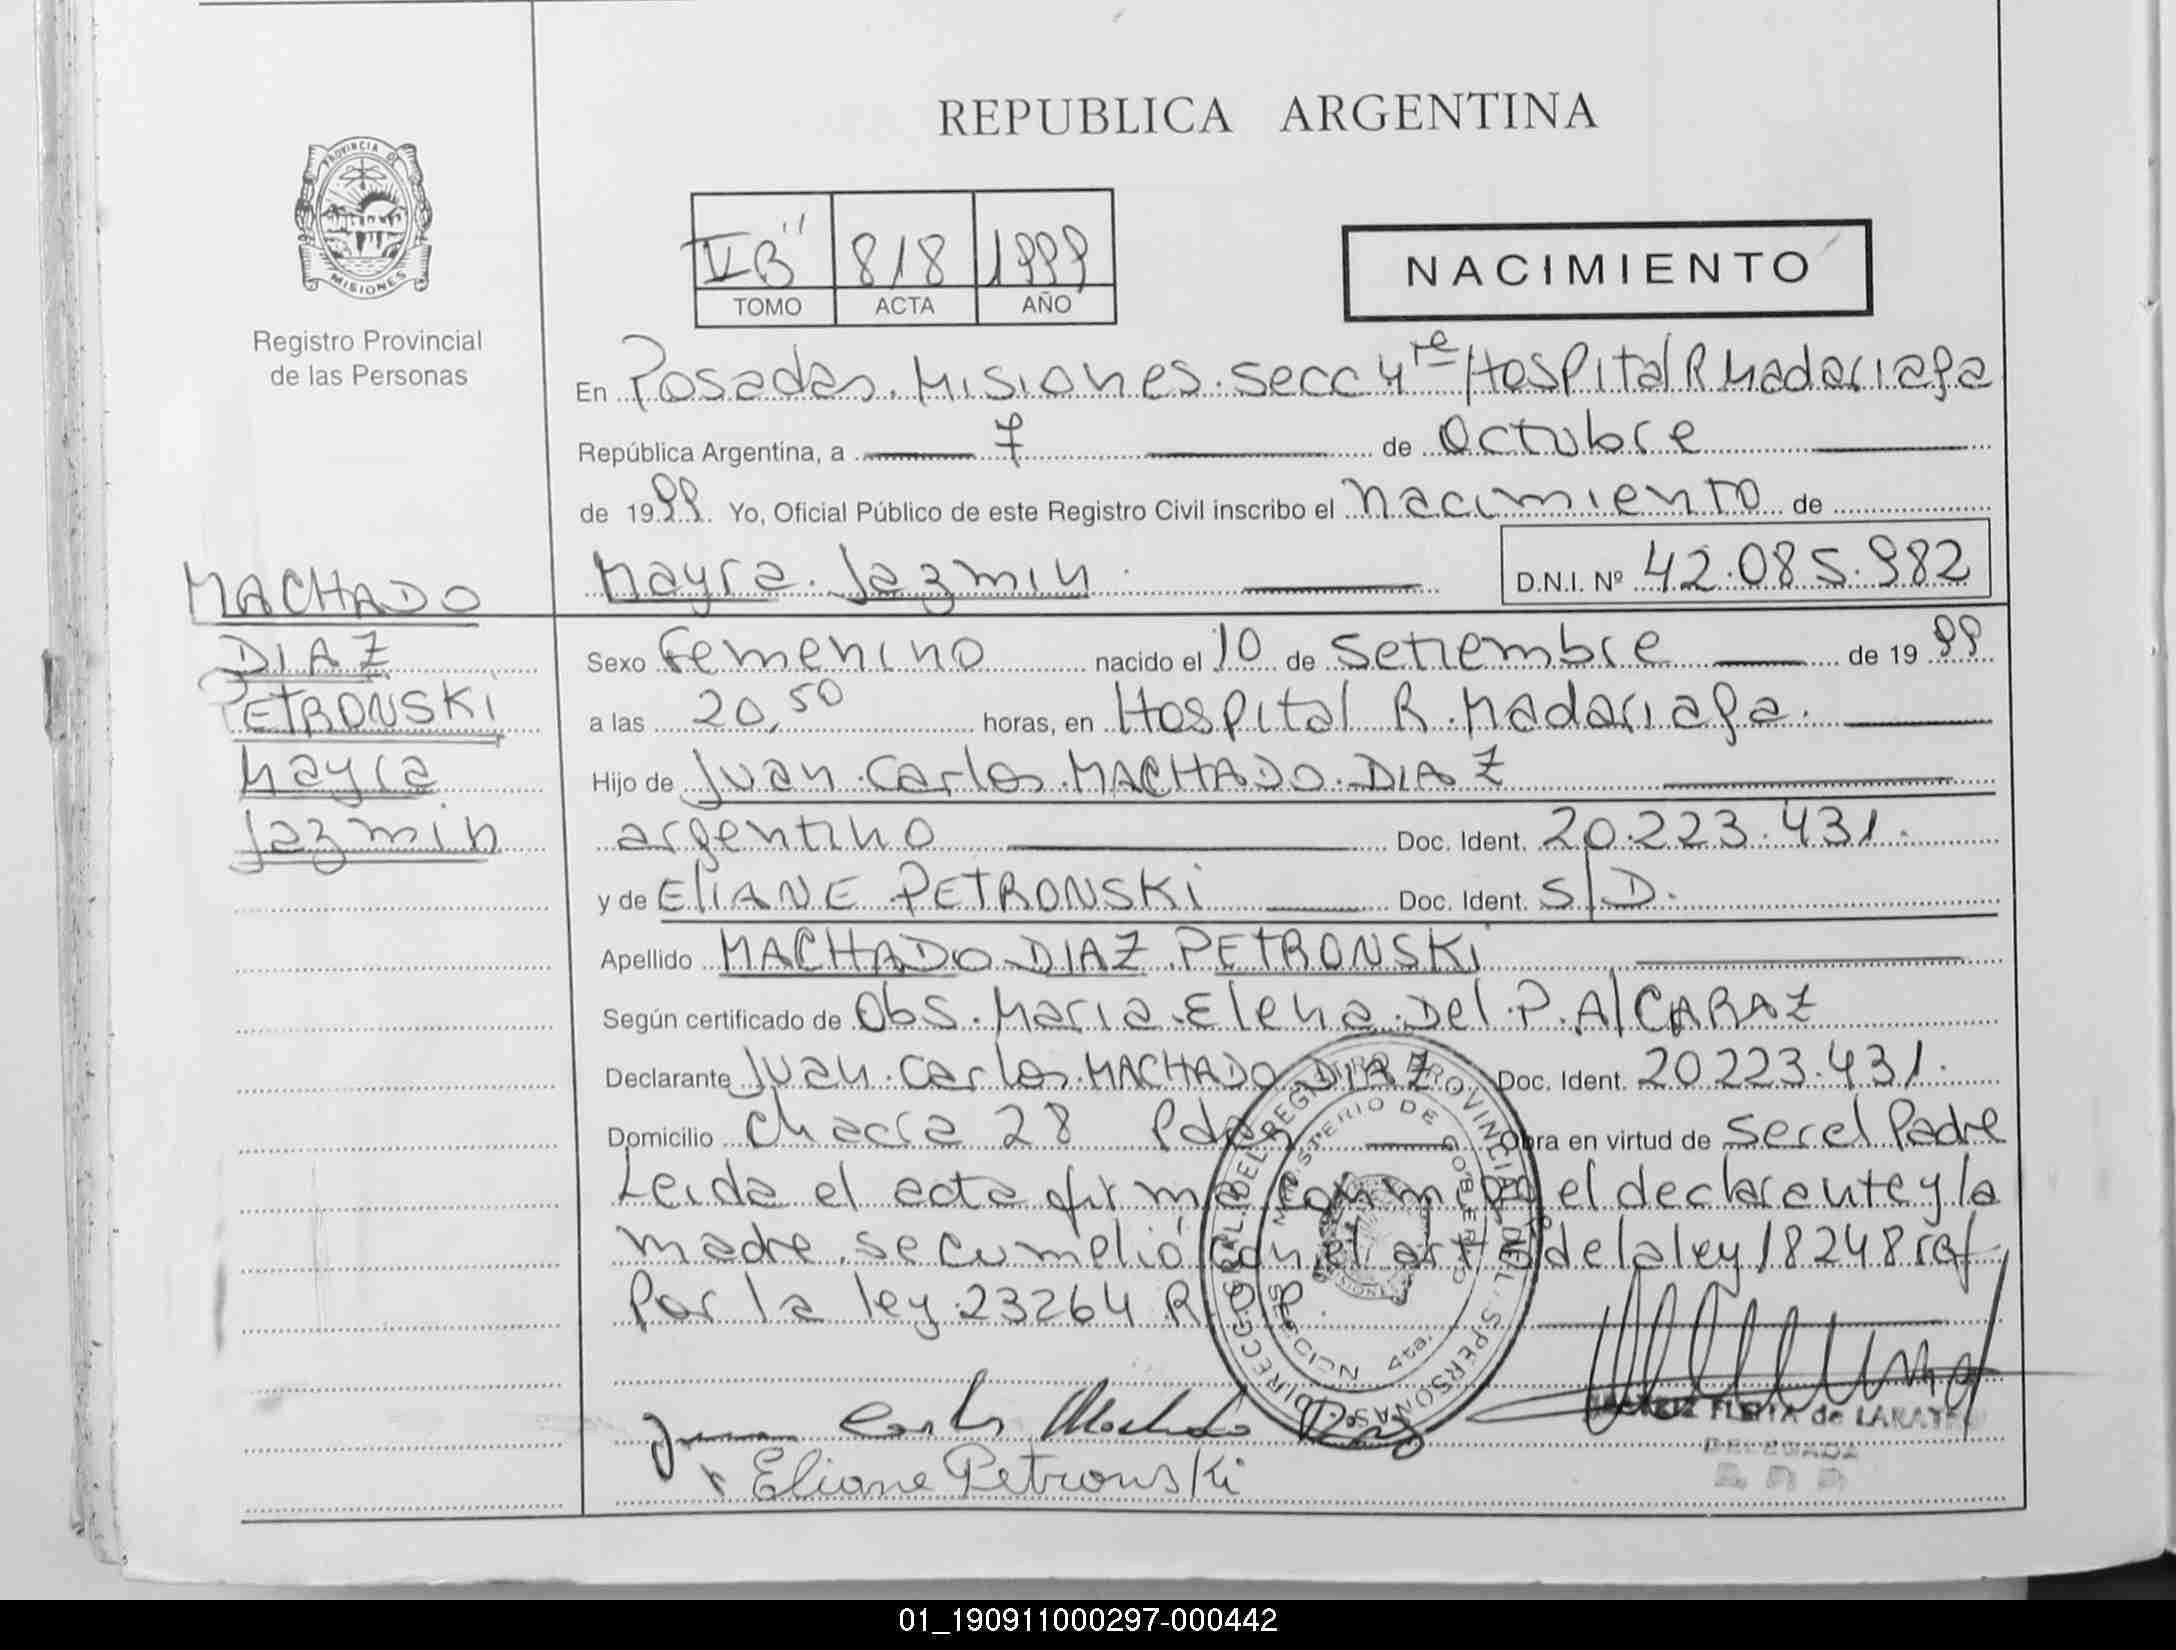 REPUBLICA ARGENTINA
PROVINCIA DE
MISIONES
Registro Provincial
de las Personas
V B" 818 1999
TOMO ACTA AÑO
NACIMIENTO
En Posadas. Misiones. secc 4ta Hospital R Madariaga
República Argentina, a 7 de Octubre
de 1999. Yo, Oficial Público de este Registro Civil inscribo el nacimiento de
Mayra. Jazmin. D.N.I. Nº 42.085.982
MACHADO
DIAZ
PETRONSKi
Mayra
Jazmin
Sexo Femenino nacido el 10 de setiembre de 1999
a las 20,50 horas, en Hospital R. Madariaga.
Hijo de Juan. Carlos. MACHADO. DIAZ
argentino Doc. Ident. 20.223.431.
y de EliANE PETRONSKi Doc. Ident. S/D.
Apellido MACHADO DIAZ PETRONSKi
Según certificado de Obs. Maria. Elena. Del. P. AlCARAZ
Declarante Juan. Carlos. MACHADO DIAZ Doc. Ident. 20223.431.
Domicilio Chacra 28 Pdas Obra en virtud de ser el Padre
Leida el acta firma conmigo el declarante y la
madre. se cumplió con el art de la ley 18248 ref
Por la ley 23264 R
DIRECC. GRAL. DEL REGISTRO PROVINCIAL DE L. S PERSONAS
MINISTERIO DE GOBIERNO
SECCION 4ta.
Juan Carlos Machado Diaz
Eliane Petronski
de
DELEGADA
01_190911000297-000442